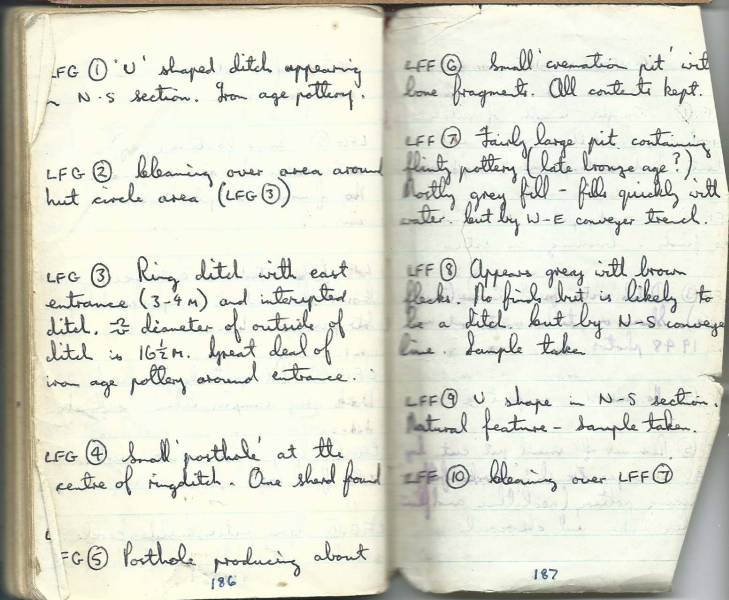 LFG ① 'U' shaped ditch appearing
in N-S section. Iron age pottery.
LFG ② Cleaning over area around
hut circle area (LFG ③)
LFG ③ Ring ditch with east
entrance (3-4 M) and interupted
ditch. diameter of outside of
ditch is 16½ M. Great deal of
iron age pottery around entrance.
LFG ④ Small 'posthole' at the
centre of ringditch. One sherd found
LFG ⑤ Posthole producing about
186
LFF ⑥ Small 'cremation pit' with
bone fragments. All contents kept.
LFF ⑦ Fairly large pit containing
flinty pottery (late bronze age?)
Mostly grey fill - fills quickly with
water. Cut by W-E conveyer trench.
LFF ⑧ Appears grey with brown
flecks. No finds but is likely to
be a ditch. Cut by N-S conveyer
line. Sample taken
LFF ⑨ U shape in N-S section.
Natural feature - Sample taken.
LFF ⑩ Cleaning over LFF ⑦
187